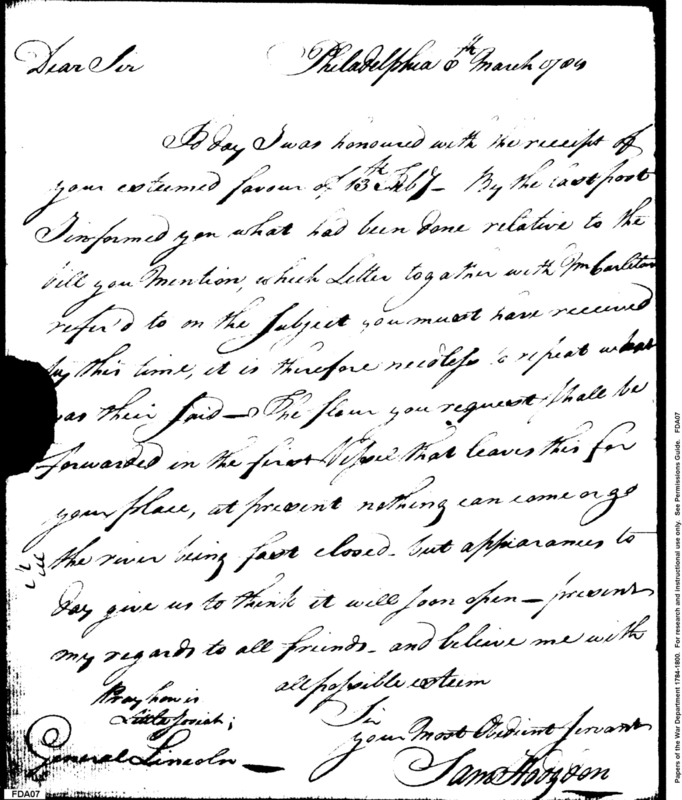 Dear Sir Philadelphia 6th March 1784
To day I was honoured with the receipt of
your esteemed favour of 13th Feby— By the last post
I informed you what had been done relative to the
bill you Mention, which Letter together with Mr Carleton
refer'd to on the Subject you must have received
by this time, it is therefore needless to repeat what
was their said— The flour you request shall be
forwarded in the first Vessel that leaves this for
your place, at present nothing can come or go
the river being fast closed- but appearances to
day give us to think it will soon open— present
my regards to all friends- and believe me with
all possible esteem
Sir
your Most Obedient Servant
Sam Hodgdon
Pray how is
Little Josiah;
General Lincoln—
FDA07
Papers of the War Department 1784-1800. For research and instructional use only. See Permissions Guide. FDA07